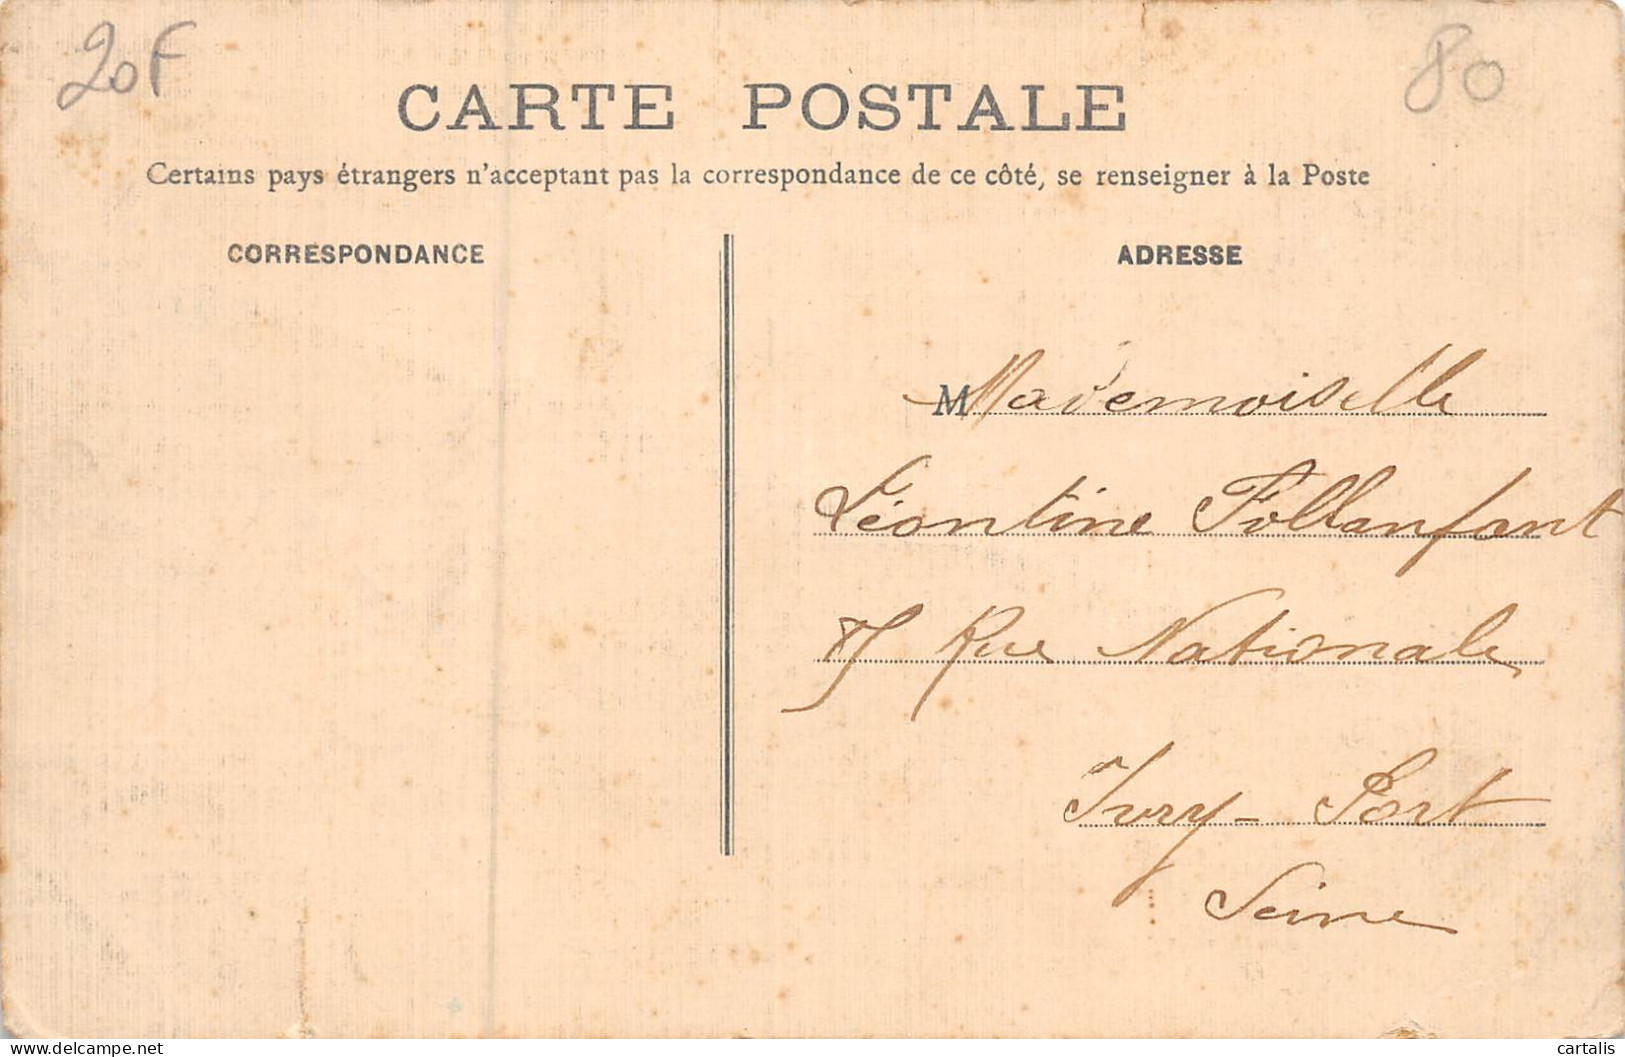 20F
80
CARTE POSTALE
Certains pays étrangers n'acceptant pas la correspondance de ce côté, se renseigner à la Poste
CORRESPONDANCE
ADRESSE
M Mademoiselle
Léontine Follanfant
Rue Nationale
Ivry-Port
Seine
delcampe.net
cartalis